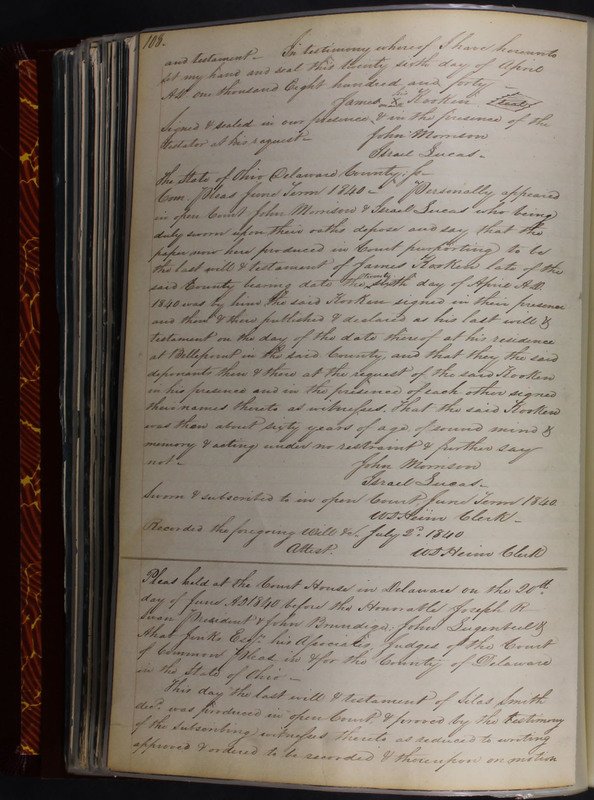 108.
and testament – In testimony whereof I have hereunto
set my hand and seal this twenty sixth day of April
A.D. one thousand Eight hundred and forty –
James his X Kooken Seal
Signed & sealed in our presence & in the presence of the
testator at his request – John Morrison
Israel Lucas –
The State of Ohio Delaware County, ss
Com. Pleas June Term 1840 – Personally appeared
in open Court John Morrison & Israel Lucas who being
duly sworn upon their oaths depose and say that the
paper now here produced in Court purporting to be
the last will & testament of James Kooken late of the
said County bearing date the twenty sixth day of April A.D.
1840 was by him the said Kooken signed in their presence
and then & there published & declared as his last will &
testament on the day of the date thereof at his residence
at Bellepoint in the said County, and that they the said
deponants then & there at the request of the said Kooken
in his presence and in the presence of each other signed
their names thereto as witnesses. That the said Kooken
was then about sixty years of age of sound mind &
memory & acting under no restraint & further say
not – John Morrison
Israel Lucas –
Sworn & subscribed to in open Court June Term 1840
W D Heim Clerk –
Recorded the foregoing Will &c. July 2d. 1840
Attest. W D Heim Clerk
Pleas held at the Court House in Delaware on the 20th
day of June AD 1840 before the Honorable Joseph R
Swan President & John Brundige, John Lugenbeel &
Ahab Jinks Esqrs. his Associates, Judges of the Court
of Common Pleas in & for the County of Delaware
in the State of Ohio –
This day the last will & testament of Silas Smith
decd. was produced in open Court & proved by the testimony
of the subscribing witnesses thereto as reduced to writing
approved & ordered to be recorded & thereupon on motion